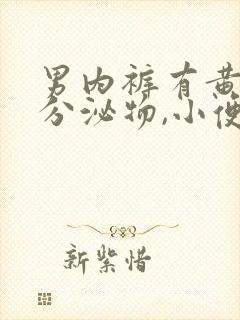 男内裤有黄
分泌物,小便
新紫惜